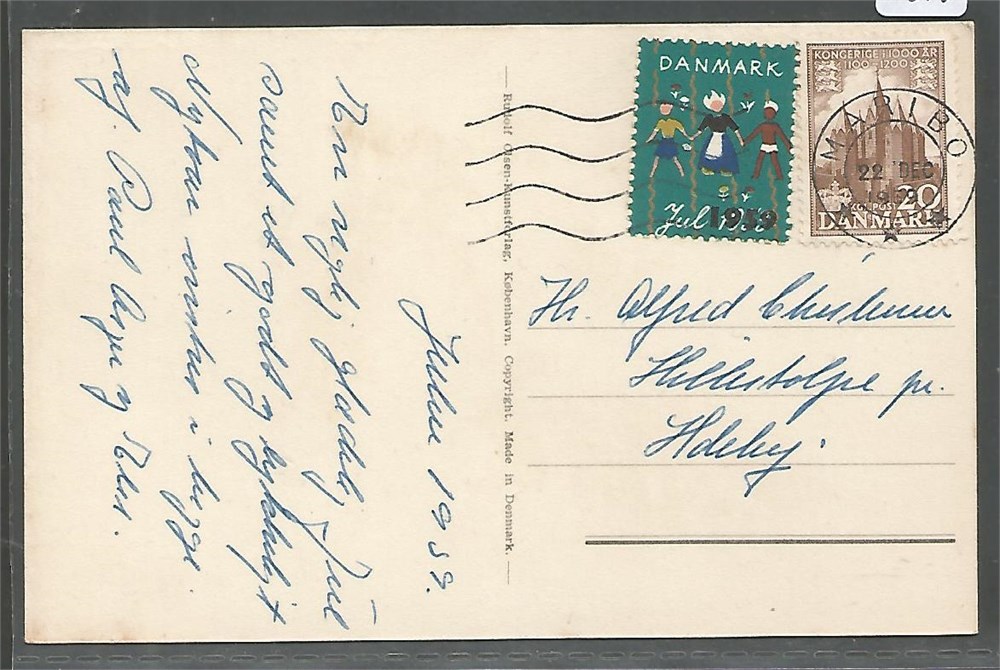 DANMARK
Jul 1959
KONGERIGE I 1000 ÅR
1100-1200
MARIBO
22 DEC
1959
20
KGL POST
DANMARK
Rudolf Olsen-Kunstforlag, København. Copyright. Made in Denmark.
Hr. Alfred
Hillestolpe pr.
Holeby.
Julen 1959.
En glædelig Jul
samt et godt og lykkeligt
Nytaar ønskes i begge
af Poul Aage og